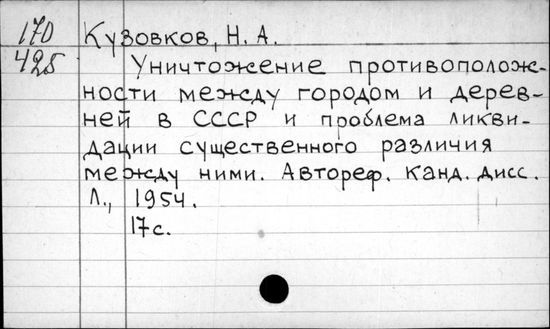 170 Кузовков, Н. А.
425 Уничтожение противополож-
ности между городом и дерев-
ней в СССР и проблема ликви-
дации существенного различия
между ними. Автореф. канд. дисс.
Л., 1954.
17с.